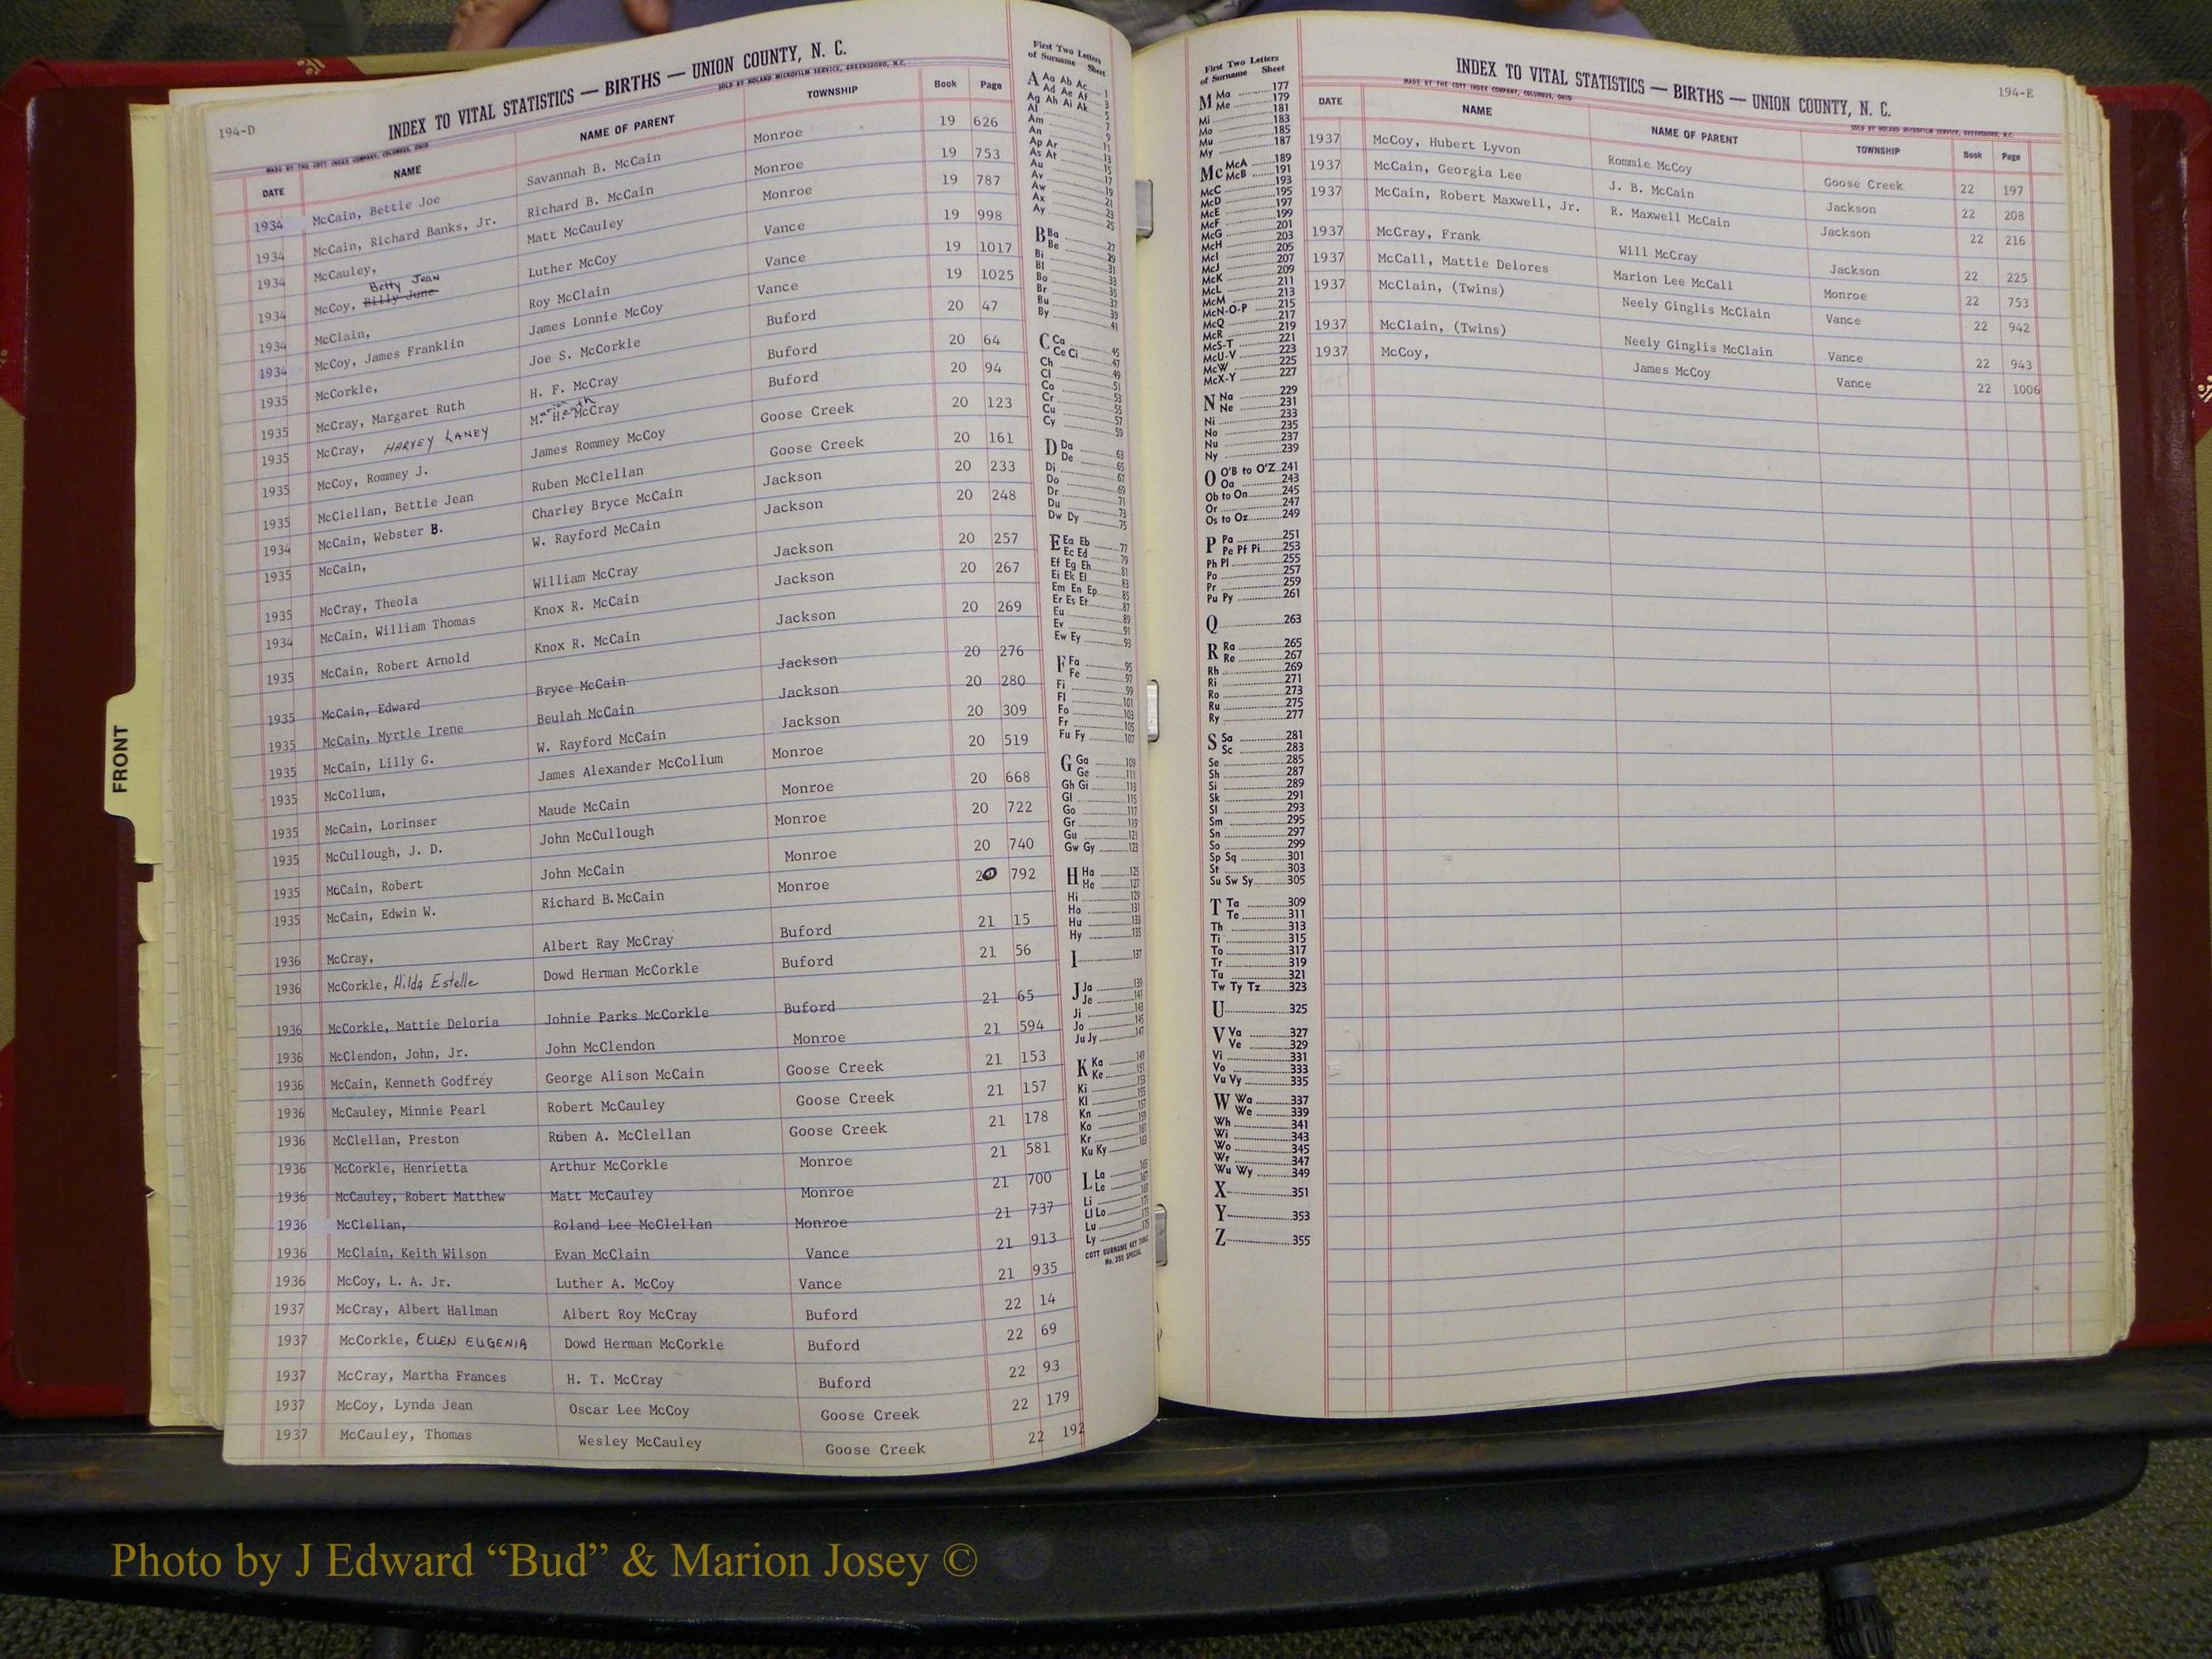 194-D
INDEX TO VITAL STATISTICS — BIRTHS — UNION COUNTY, N. C.
MADE BY THE COTT INDEX COMPANY, COLUMBUS, OHIO SOLD BY NOLAND MICROFILM SERVICE, GREENSBORO, N.C.
DATE NAME NAME OF PARENT TOWNSHIP Book Page
1934 McCain, Bettie Joe Savannah B. McCain Monroe 19 626
1934 McCain, Richard Banks, Jr. Richard B. McCain Monroe 19 753
1934 McCauley, Matt McCauley Monroe 19 787
Betty Jean
1934 McCoy, Billy June Luther McCoy Vance 19 998
1934 McClain, Roy McClain Vance 19 1017
1934 McCoy, James Franklin James Lonnie McCoy Vance 19 1025
1935 McCorkle, Joe S. McCorkle Buford 20 47
1935 McCray, Margaret Ruth H. F. McCray Buford 20 64
1935 McCray, HARVEY LANEY M. H. McCray Buford 20 94
1935 McCoy, Rommey J. James Rommey McCoy Goose Creek 20 123
1935 McClellan, Bettie Jean Ruben McClellan Goose Creek 20 161
1934 McCain, Webster B. Charley Bryce McCain Jackson 20 233
1935 McCain, W. Rayford McCain Jackson 20 248
1935 McCray, Theola William McCray Jackson 20 257
1934 McCain, William Thomas Knox R. McCain Jackson 20 267
1935 McCain, Robert Arnold Knox R. McCain Jackson 20 269
1935 McCain, Edward Bryce McCain Jackson 20 276
1935 McCain, Myrtle Irene Beulah McCain Jackson 20 280
1935 McCain, Lilly G. W. Rayford McCain Jackson 20 309
1935 McCollum, James Alexander McCollum Monroe 20 519
1935 McCain, Lorinser Maude McCain Monroe 20 668
1935 McCullough, J. D. John McCullough Monroe 20 722
1935 McCain, Robert John McCain Monroe 20 740
1935 McCain, Edwin W. Richard B. McCain Monroe 20 792
1936 McCray, Albert Ray McCray Buford 21 15
1936 McCorkle, Hilda Estelle Dowd Herman McCorkle Buford 21 56
1936 McCorkle, Mattie Deloria Johnie Parks McCorkle Buford 21 65
1936 McClendon, John, Jr. John McClendon Monroe 21 594
1936 McCain, Kenneth Godfrey George Alison McCain Goose Creek 21 153
1936 McCauley, Minnie Pearl Robert McCauley Goose Creek 21 157
1936 McClellan, Preston Ruben A. McClellan Goose Creek 21 178
1936 McCorkle, Henrietta Arthur McCorkle Monroe 21 581
1936 McCauley, Robert Matthew Matt McCauley Monroe 21 700
1936 McClellan, Roland Lee McClellan Monroe 21 737
1936 McClain, Keith Wilson Evan McClain Vance 21 913
1936 McCoy, L. A. Jr. Luther A. McCoy Vance 21 935
1937 McCray, Albert Hallman Albert Roy McCray Buford 22 14
1937 McCorkle, ELLEN EUGENIA Dowd Herman McCorkle Buford 22 69
1937 McCray, Martha Frances H. T. McCray Buford 22 93
1937 McCoy, Lynda Jean Oscar Lee McCoy Goose Creek 22 179
1937 McCauley, Thomas Wesley McCauley Goose Creek 22 192
FRONT
First Two Letters
of Surname Sheet
A Aa Ab Ac 1
Ad Ae Af 3
Ag Ah Ai Ak 5
Al
Am 9
An 11
Ap Ar 13
As At 15
Au 17
Av 19
Aw 21
Ax 23
Ay 25
B Ba 27
Be 29
Bi 31
Bl 33
Bo 35
Br 37
Bu 39
By 41
C Ca 45
Ce Ci 47
Ch 49
Cl 51
Co 53
Cr 55
Cu 57
Cy 59
D Da 63
De 65
Di 67
Do 69
Dr 71
Du 73
Dw Dy 75
E Ea Eb 77
Ec Ed 79
Ef Eg Eh 81
Ei Ek El 83
Em En Ep 85
Er Es Et 87
Eu 89
Ev 91
Ew Ey 93
F Fa 95
Fe 97
Fi 99
Fl 101
Fo 103
Fr 105
Fu Fy 107
G Ga 109
Ge 111
Gh Gi 113
Gl 115
Go 117
Gr 119
Gu 121
Gw Gy 123
H Ha 125
He 127
Hi 129
Ho 131
Hu 133
Hy 135
I 137
J Ja 139
Je 141
Ji 143
Jo 145
Ju Jy 147
K Ka 149
Ke 151
Ki 153
Kl 155
Kn 157
Ko 159
Kr 161
Ku Ky 163
L La 165
Le 167
Li 169
Ll Lo 171
Lu 173
Ly 175
COTT SURNAME KEY TABLE
No. 355 SPECIAL
First Two Letters
of Surname Sheet
M Ma 177
Me 179
Mi 181
Mo 183
Mu 185
My 187
Mc McA 189
McB 191
McC 193
McD 195
McE 197
McF 199
McG 201
McH 203
McI 205
McJ 207
McK 209
McL 211
McM 213
McN-O-P 215
McQ 217
McR 219
McS-T 221
McU-V 223
McW 225
McX-Y 227
N Na 229
Ne 231
Ni 233
No 235
Nu 237
Ny 239
O O'B to O'Z 241
Oa 243
Ob to On 245
Or 247
Os to Oz 249
P Pa 251
Pe Pf Pi 253
Ph Pl 255
Po 257
Pr 259
Pu Py 261
Q 263
R Ra 265
Re 267
Rh 269
Ri 271
Ro 273
Ru 275
Ry 277
S Sa 281
Sc 283
Se 285
Sh 287
Si 289
Sk 291
Sl 293
Sm 295
Sn 297
So 299
Sp Sq 301
St 303
Su Sw Sy 305
T Ta 309
Te 311
Th 313
Ti 315
To 317
Tr 319
Tu 321
Tw Ty Tz 323
U 325
V Va 327
Ve 329
Vi 331
Vo 333
Vu Vy 335
W Wa 337
We 339
Wh 341
Wi 343
Wo 345
Wr 347
Wu Wy 349
X 351
Y 353
Z 355
194-E
INDEX TO VITAL STATISTICS — BIRTHS — UNION COUNTY, N. C.
MADE BY THE COTT INDEX COMPANY, COLUMBUS, OHIO SOLD BY NOLAND MICROFILM SERVICE, GREENSBORO, N.C.
DATE NAME NAME OF PARENT TOWNSHIP Book Page
1937 McCoy, Hubert Lyvon Rommie McCoy Goose Creek 22 197
1937 McCain, Georgia Lee J. B. McCain Jackson 22 208
1937 McCain, Robert Maxwell, Jr. R. Maxwell McCain Jackson 22 216
1937 McCray, Frank Will McCray Jackson 22 225
1937 McCall, Mattie Delores Marion Lee McCall Monroe 22 753
1937 McClain, (Twins) Neely Ginglis McClain Vance 22 942
1937 McClain, (Twins) Neely Ginglis McClain Vance 22 943
1937 McCoy, James McCoy Vance 22 1006
Photo by J Edward “Bud” & Marion Josey ©